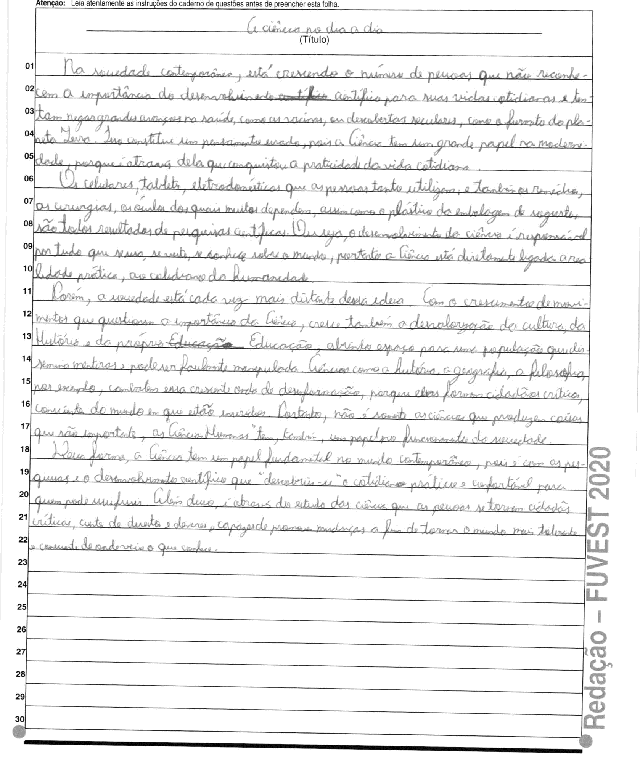 Atenção: Leia atentamente as instruções do caderno de questões antes de preencher esta folha.
A ciência no dia a dia
(Título)
01 Na sociedade contemporânea, está crescendo o número de pessoas que não reconhe-
02 cem a importância do desenvolvimento científico para suas vidas cotidianas e ten-
03 tam negar grandes avanços na saúde, como as vacinas, ou descobertas seculares, como o formato do pla-
04 neta Terra. Isso constitui um pensamento errado, pois a Ciência tem um grande papel na moderni-
05 dade, porque é através dela que conquistou a praticidade da vida cotidiana.
06 Os celulares, tablets, eletrodomésticos que as pessoas tanto utilizam, e também os remédios,
07 as cirurgias, os óculos dos quais muitos dependem, assim como o plástico da embalagem do iogurte,
08 são todos resultados de pesquisas científicas. Ou seja, o desenvolvimento da ciência é responsável
09 por tudo que se usa, se veste, se conhece sobre o mundo, portato a Ciência está diretamente ligada a rea-
10 lidade prática, ao cotidiano da humanidade.
11 Porém, a sociedade está cada vez mais distante dessa ideia. Com o crescimento de movi-
12 mentos que questionam a importância da Ciência, cresce também a desvalorização da cultura, da
13 História e da própria Educação, abrindo espaço para uma população que
14 sem e pode ser facilmente manipulada. Ciências como a história, a geografia, a filosofia,
15 por exemplo, combatem essa crescente onda de desinformação, porque elas formam cidadãos críticos,
16 conscientes do mundo em que estão inseridos. Portanto, não é somente as ciências que produzem coisas
17 que são importante, as Ciências Humanas tem, também, um papel no funcionamento da sociedade.
18 Dessa forma, a Ciência tem um papel fundamental no mundo contemporâneo, pois é com as pes-
19 quisas e o desenvolvimento científico que "descobriu-se" o cotidiano prático e confortável para
20 quem pode usufruir. Além disso, é através do estudo das ciências que as pessoas se tornam cidadãs
21 críticas, ciente de direitos e deveres, capazes de promover mudanças a fim de tornar o mundo mais tolerante
22 e consciente de onde veio o que conhece.
23
24
25
26
27
28
29
30
Redação – FUVEST 2020